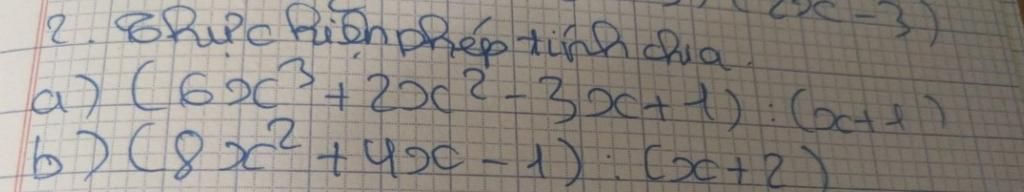 (2x - 3)
2. Thực hiện phép tính chia.
a) (6x³ + 2x² - 3x + 1) : (x + 1)
b) (8x² + 4x - 1) : (x + 2)